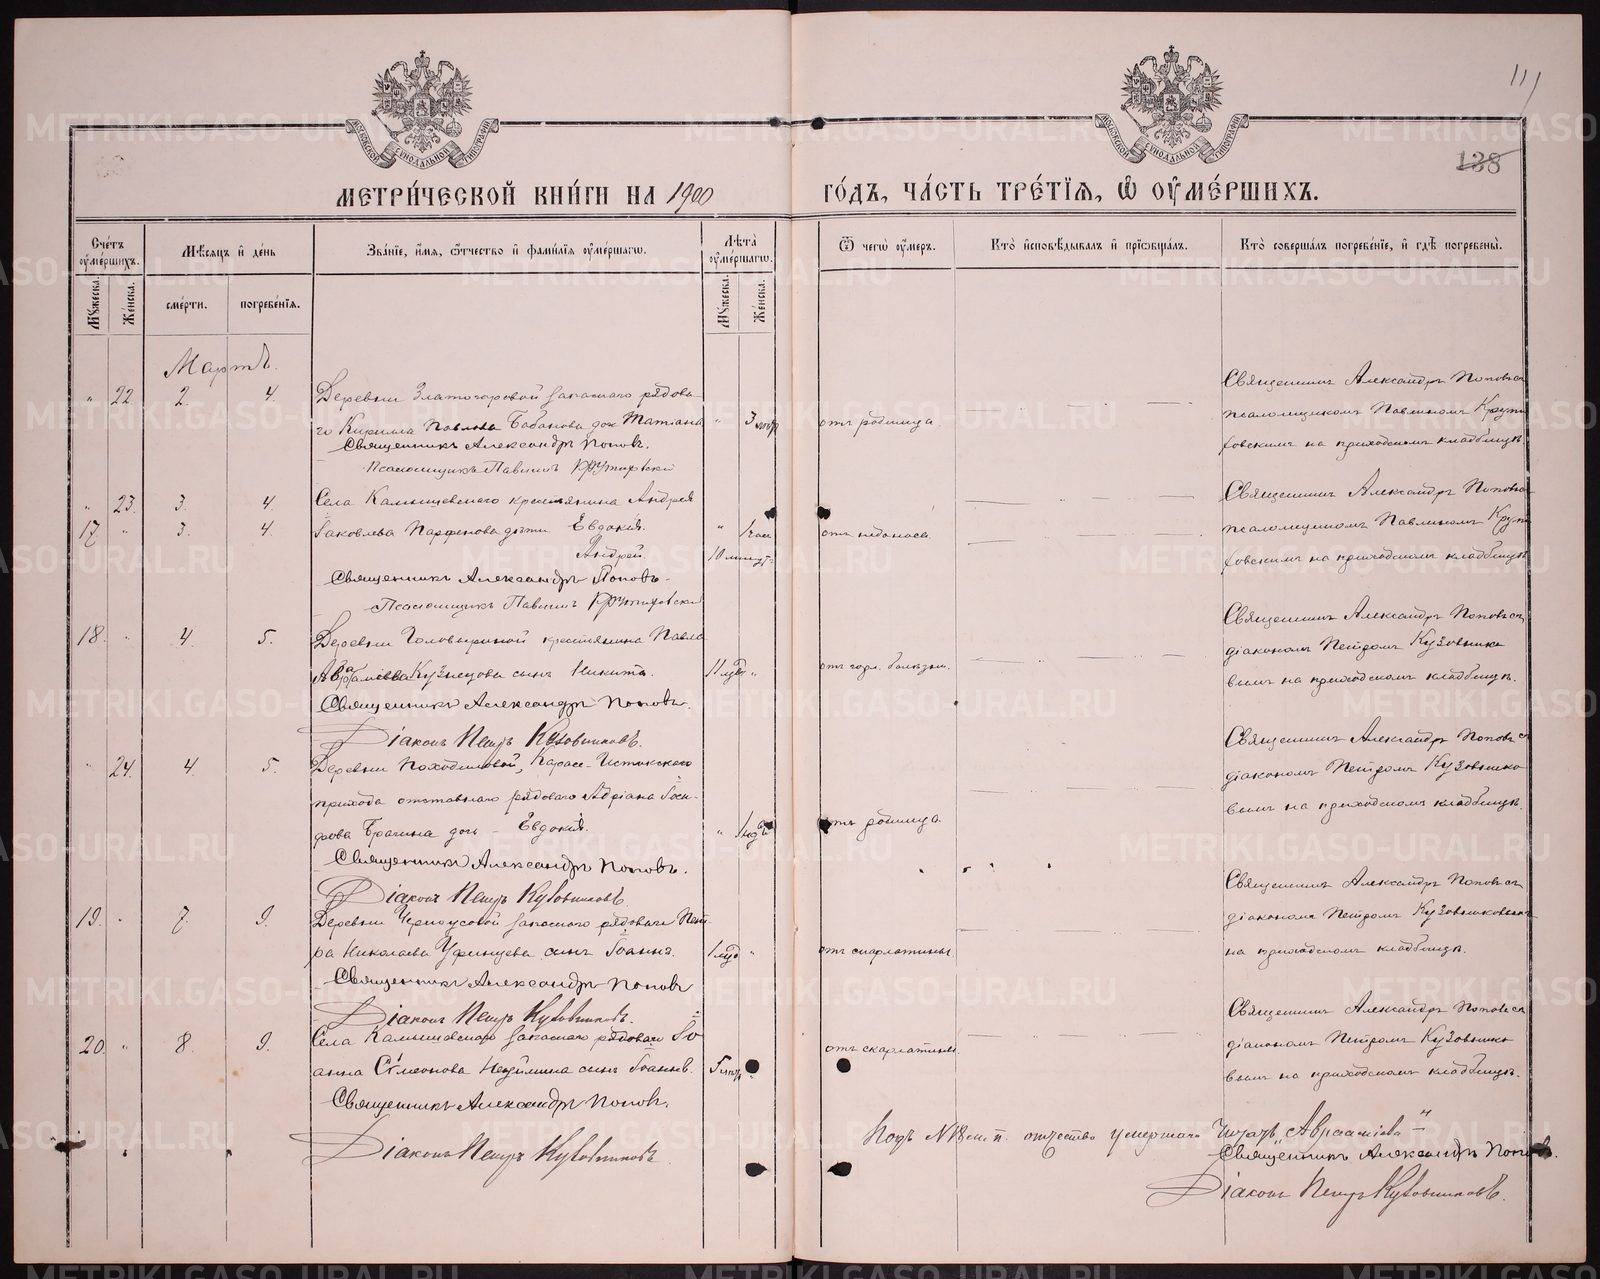 111
138
МОСКОВСКОЙ СѴНОДАЛЬНОЙ ТИПОГРАФІИ
МОСКОВСКОЙ СѴНОДАЛЬНОЙ ТИПОГРАФІИ
МЕТРИ́ЧЕСКОЙ КНИ́ГИ НА 1900 ГО́ДЪ, ЧА́СТЬ ТРЕ́ТІѦ, Ѽ ОУ҆МЕ́РШИХЪ.
Счетъ оумершихъ.
Мѣсяцъ и день
Званіе, имя, отчество и фамилія оумершагω.
Лѣта оумершагω.
Ѿ чегω оумеръ.
Кто исповѣдывалъ и пріωбщалъ.
Кто совершалъ погребеніе, и гдѣ погребены.
Мужеска.
Женска.
смерти.
погребенія.
Мужеска.
Женска.
Мартъ.
" 22. 2. 4.
Деревни Златогоровой запаснаго рядова-
го Кирилла Павлова Бабанова дочь Татіана
Священникъ Александръ Поповъ.
Псаломщикъ Павлинъ Крутиховскій
" 3
отъ родимца.
Священникъ Александръ Поповъ съ
псаломщикомъ Павлиномъ Крути
ховскимъ на приходскомъ кладбищѣ
" 23. 3. 4.
17 " 3. 4.
Села Камышевскаго крестьянина Андрея
Іаковлева Парфенова дѣти Евдокія.
Андрей.
Священникъ Александръ Поповъ.
Псаломщикъ Павлинъ Крутиховскій
" 1 часъ
10 минутъ
отъ недоноса
Священникъ Александръ Поповъ съ
псаломщикомъ Павлиномъ Крути
ховскимъ на приходскомъ кладбищѣ
18. " 4 5.
Деревни Головыриной крестьянина Павла
Авраміева Кузнецова сынъ Никита.
Священникъ Александръ Поповъ.
Діаконъ Петръ Кузовниковъ.
11 "
отъ горл. болѣзни.
Священникъ Александръ Поповъ съ
діакономъ Петромъ Кузовнико
вымъ на приходскомъ кладбищѣ.
" 24. 4. 5.
Деревни Походиловой, Карасе-Истокскаго
прихода отставнаго рядоваго Адріана Іоси-
фова Брагина дочь - Евдокія.
Священникъ Александръ Поповъ.
Діаконъ Петръ Кузовниковъ
" 1 года
отъ родимца.
Священникъ Александръ Поповъ съ
діакономъ Петромъ Кузовнико
вымъ на приходскомъ кладбищѣ.
19. " 7. 9.
Деревни Черноусовой запаснаго рядоваго Пет
ра Николаева Уфинцева сынъ Іоаннъ.
Священникъ Александръ Поповъ
Діаконъ Петръ Кузовниковъ.
"
отъ скарлатины.
Священникъ Александръ Поповъ съ
діакономъ Петромъ Кузовниковымъ
на приходскомъ кладбищѣ.
20. " 8. 9.
Села Камышевскаго запаснаго рядоваго Іо
анна Сѵмеонова сынъ Іоаннъ.
Священникъ Александръ Поповъ.
Діаконъ Петръ Кузовниковъ.
5
отъ скарлатины.
Священникъ Александръ Поповъ съ
діакономъ Петромъ Кузовнико
вымъ на приходскомъ кладбищѣ.
Подъ № 18 м. п. отчество умершаго читать „Авраамiева"
Священникъ Александръ Поповъ.
Діаконъ Петръ Кузовниковъ.
METRIKI.GASO-URAL.RU